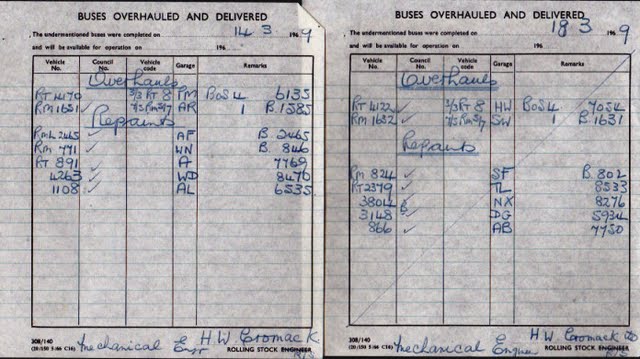 BUSES OVERHAULED AND DELIVERED
The undermentioned buses were completed on 14 3 1969
and will be available for operation on 196
Vehicle No. Council No. Vehicle code Garage Remarks
Overhauls
RT 4170 ✓ 3/3 RT 8 PM BoS 4 6135
RM 1651 ✓ 7/5 RM 5/7 AR 1 B.1585
Repaints
RML 2465 ✓ AF B. 2465
RM 771 ✓ WN B. 846
RT 891 ✓ A 7769
4263 ✓ WD 8470
1108 ✓ AL 6535
308/140
Mechanical Engr H.W. Cromack
ROLLING STOCK ENGINEER
BUSES OVERHAULED AND DELIVERED
The undermentioned buses were completed on 18 3 1969
and will be available for operation on 196
Vehicle No. Council No. Vehicle code Garage Remarks
Overhauls
RT 4122 ✓ 3/3 RT 8 HW BoS 4 7054
RM 1682 ✓ 7/5 RM 5/7 SW 1 B.1631
Repaints
RM 824 ✓ SF B. 802
RT 2379 ✓ TL 8533
3804 ✓ NX 8276
3148 DG 5934
866 ✓ AB 7750
308/140
Mechanical Engineer H.W. Cromack
ROLLING STOCK ENGINEER